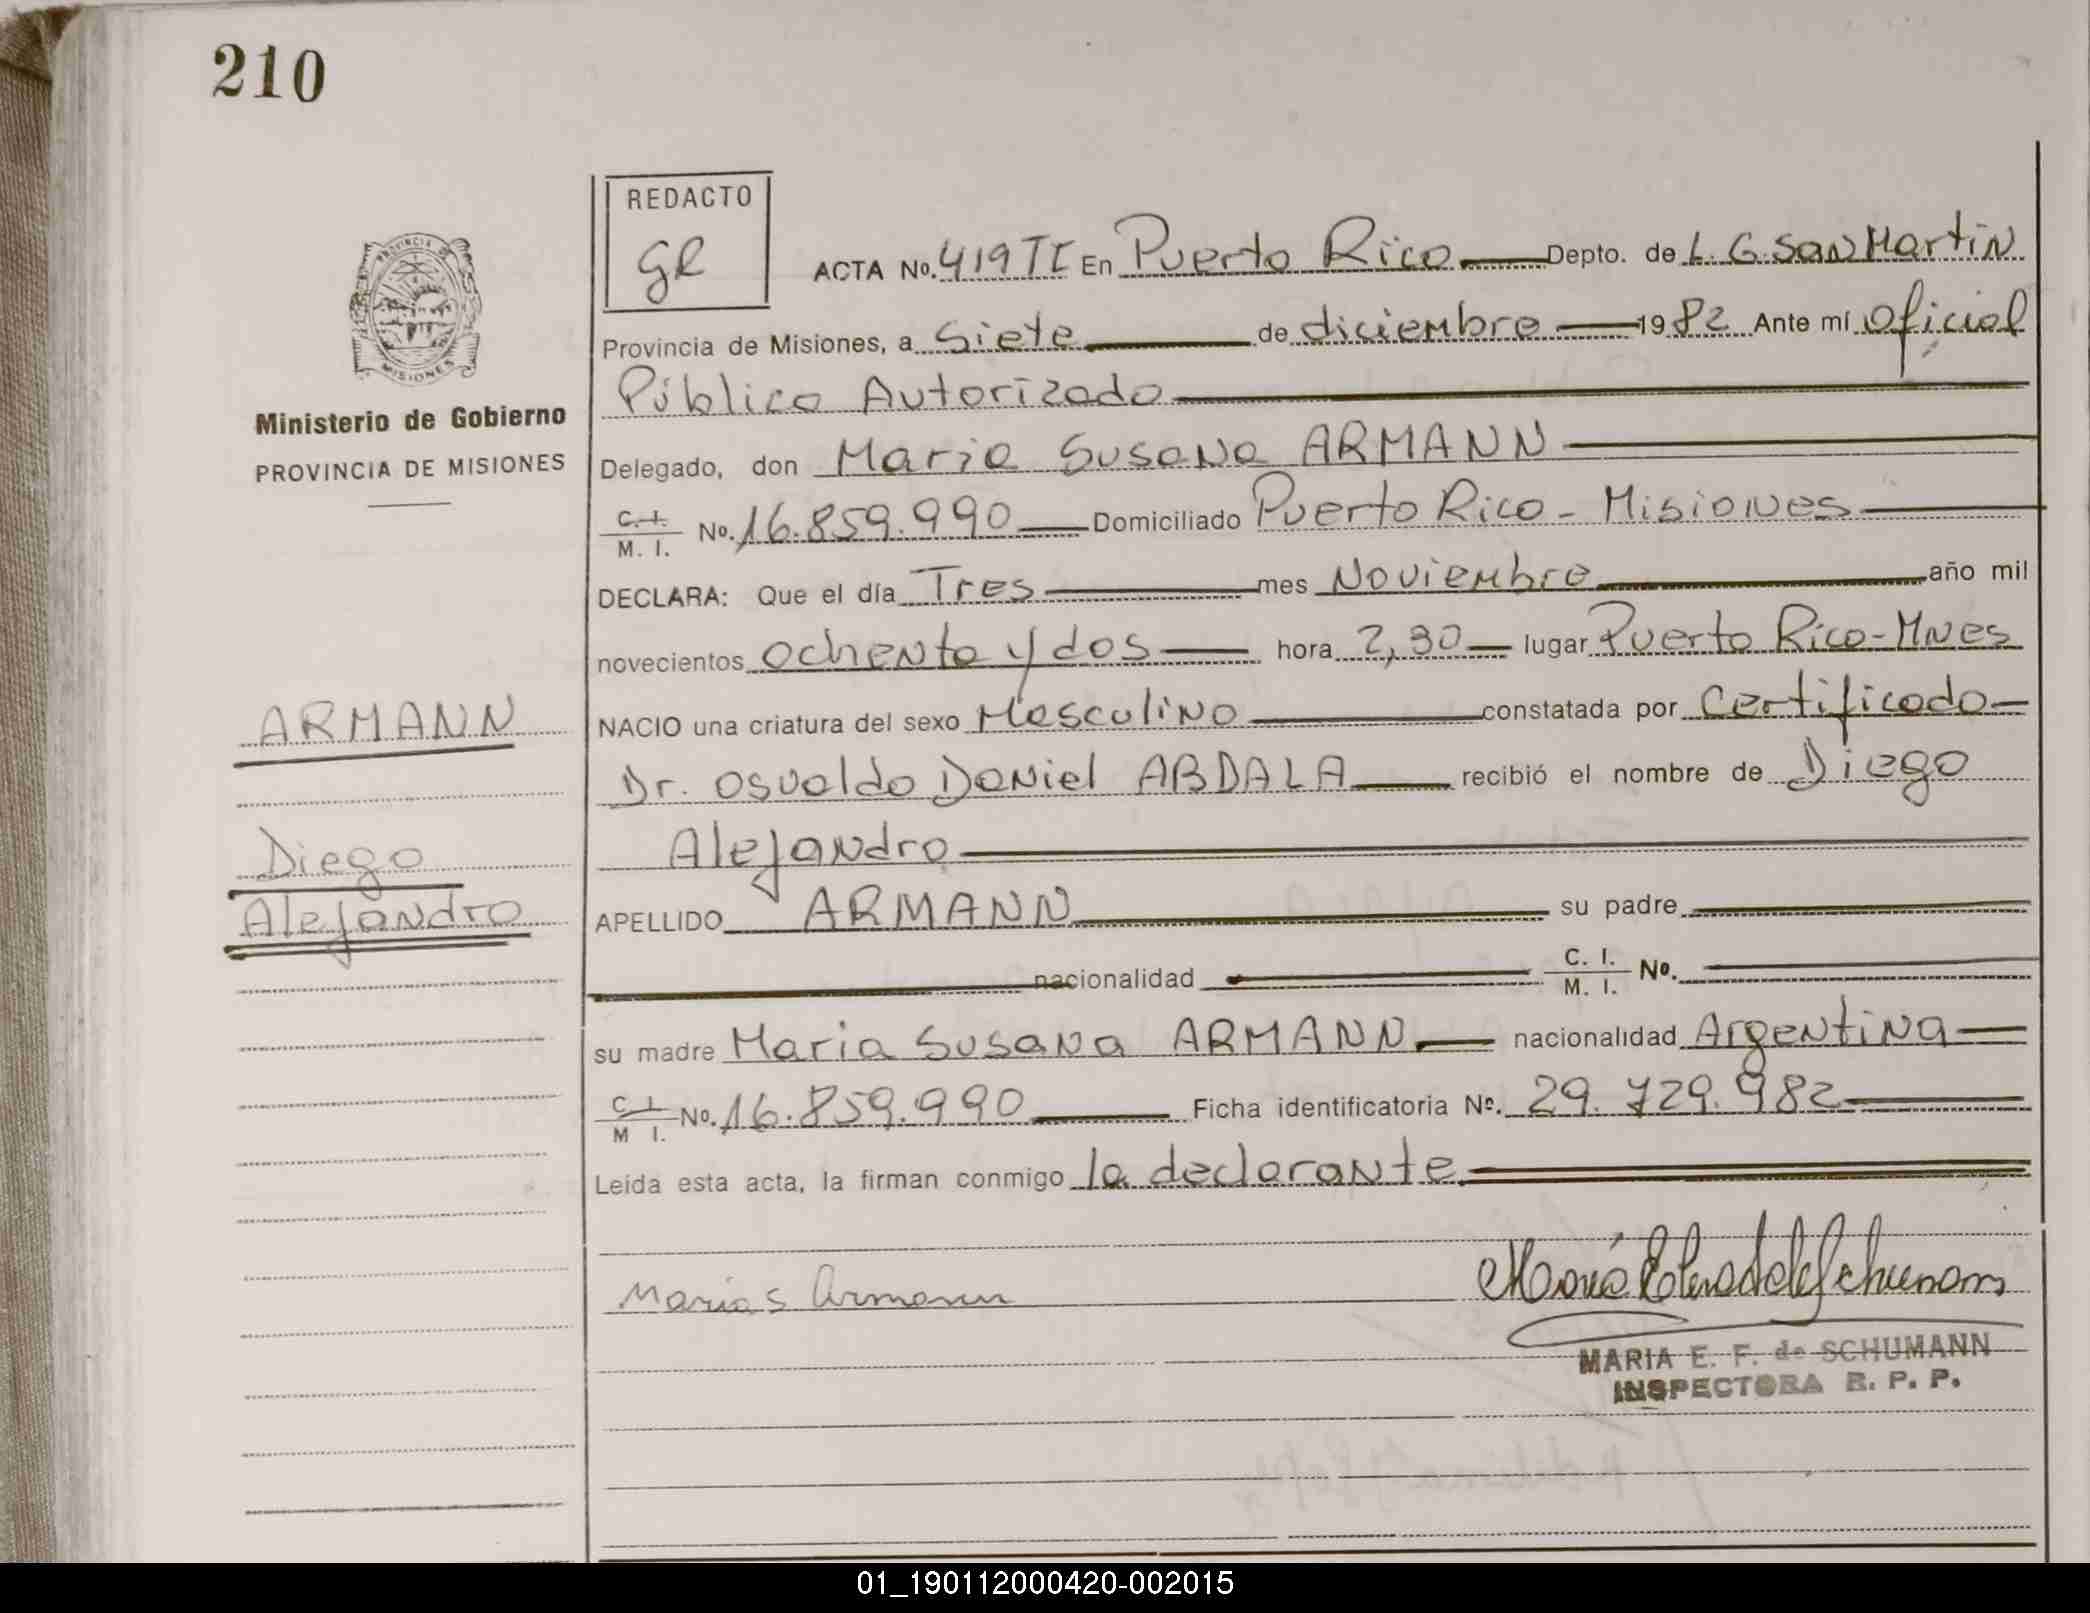 210
REDACTO
GR
PROVINCIA DE
MISIONES
Ministerio de Gobierno
PROVINCIA DE MISIONES
ACTA No. 419 TI En Puerto Rico Depto. de L. G. San Martin
Provincia de Misiones, a Siete de diciembre 1982 Ante mí Oficial
Público Autorizado
Delegado, don Maria Susana ARMANN
C. I. M. I. No. 16.859.990 Domiciliado Puerto Rico - Misiones
DECLARA: Que el día Tres mes Noviembre año mil
novecientos ochenta y dos hora 2,30 lugar Puerto Rico - Mnes
NACIO una criatura del sexo Masculino constatada por Certificado
Dr. Osvaldo Daniel ABDALA recibió el nombre de Diego
Alejandro
APELLIDO ARMANN su padre
nacionalidad C. I. M. I. No.
su madre Maria Susana ARMANN nacionalidad Argentina
C. I. M I. No. 16.859.990 Ficha identificatoria No. 29.729.982
Leída esta acta, la firman conmigo la declarante
ARMANN
Diego
Alejandro
Maria S Armann
MARIA E. F. de SCHUMANN
INSPECTORA R. P. P.
01_190112000420-002015